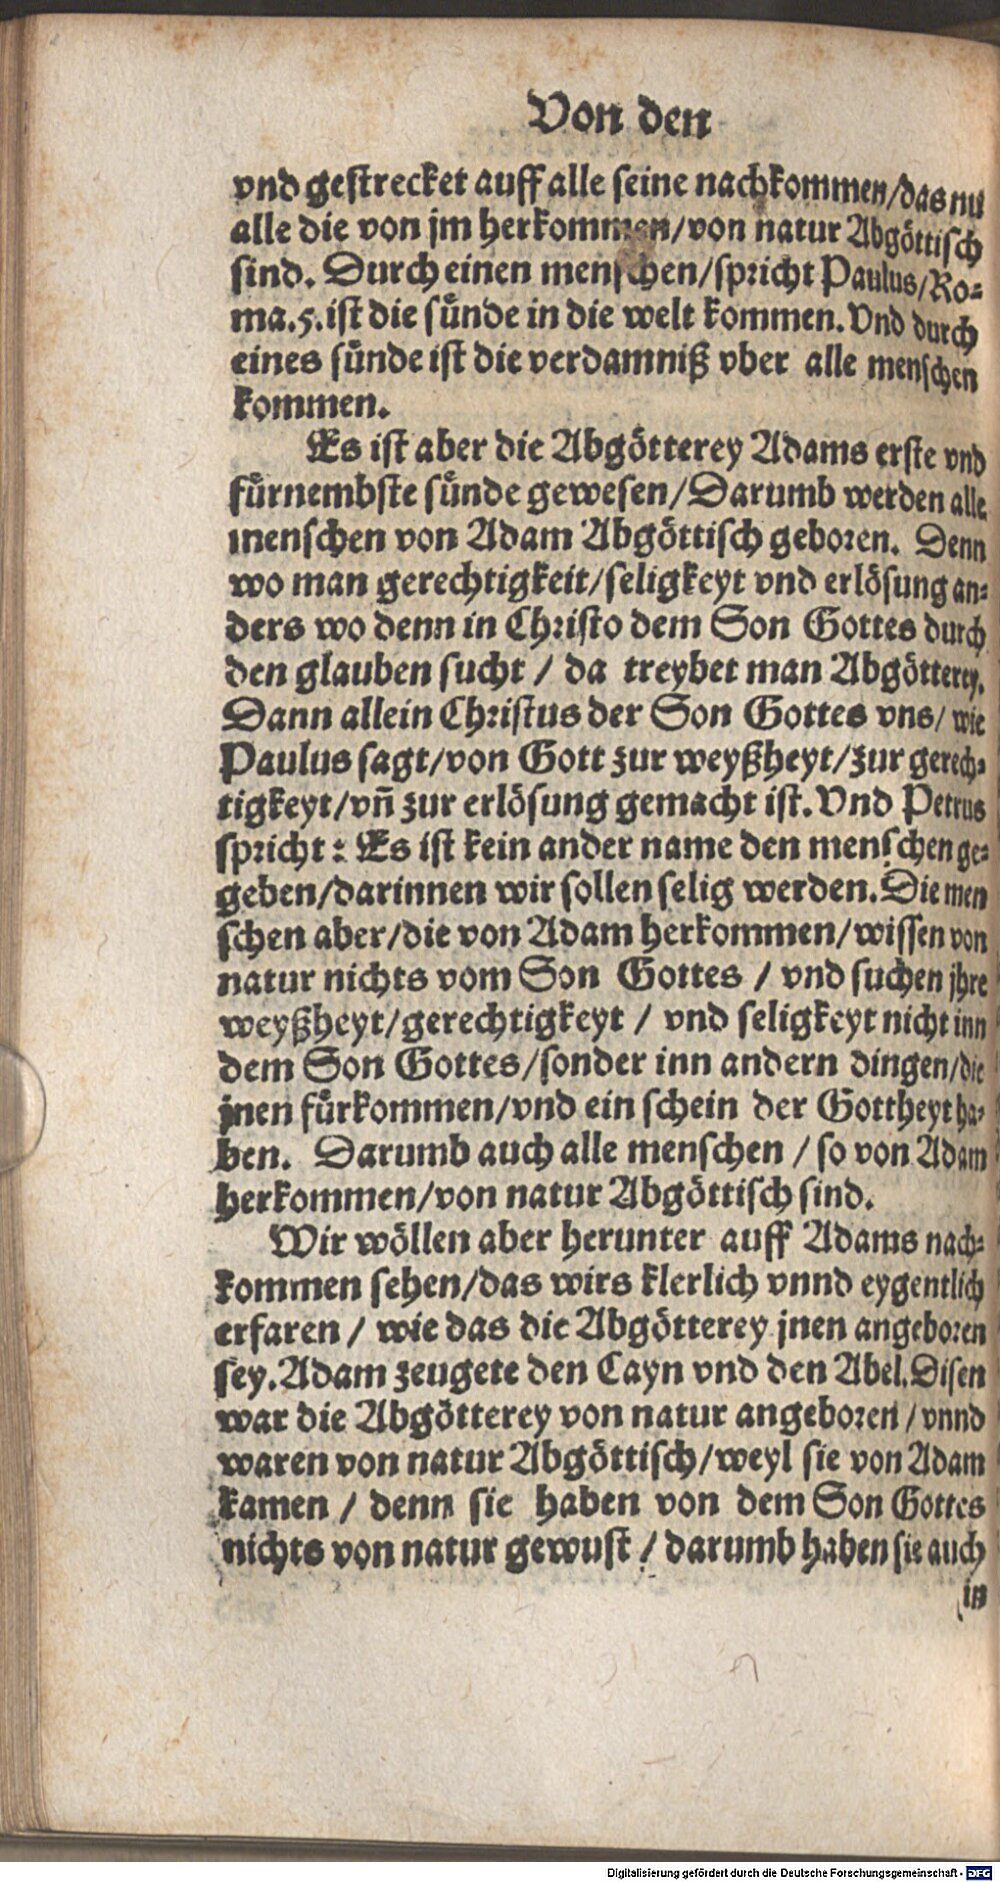 Von den
vnd gestrecket auff alle seine nachkommen/das nu
alle die von jm herkommen/von natur Abgöttisch
sind. Durch einen menschen/spricht Paulus/Ro-
ma.5.ist die sünde in die welt kommen.Vnd durch
eines sünde ist die verdamniß vber alle menschen
kommen.
Es ist aber die Abgötterey Adams erste vnd
fürnembste sünde gewesen/Darumb werden alle
menschen von Adam Abgöttisch geboren. Denn
wo man gerechtigkeit/seligkeyt vnd erlösung an-
ders wo denn in Christo dem Son Gottes durch
den glauben sucht / da treybet man Abgötterey.
Dann allein Christus der Son Gottes vns/ wie
Paulus sagt/von Gott zur weyßheyt/zur gerech-
tigkeyt/vñ zur erlösung gemacht ist.Vnd Petrus
spricht: Es ist kein ander name den menschen ge-
geben/darinnen wir sollen selig werden.Die men
schen aber/die von Adam herkommen/wissen von
natur nichts vom Son Gottes / vnd suchen jhre
weyßheyt/gerechtigkeyt / vnd seligkeyt nicht inn
dem Son Gottes/sonder inn andern dingen/die
jnen fürkommen/vnd ein schein der Gottheyt ha-
ben. Darumb auch alle menschen / so von Adam
herkommen/von natur Abgöttisch sind.
Wir wöllen aber herunter auff Adams nach-
kommen sehen/das wirs klerlich vnnd eygentlich
erfaren / wie das die Abgötterey jnen angeboren
sey.Adam zeugete den Cayn vnd den Abel.Disen
war die Abgötterey von natur angeboren / vnnd
waren von natur Abgöttisch/weyl sie von Adam
kamen / denn sie haben von dem Son Gottes
nichts von natur gewust / darumb haben sie auch
in
Digitalisierung gefördert durch die Deutsche Forschungsgemeinschaft - DFG